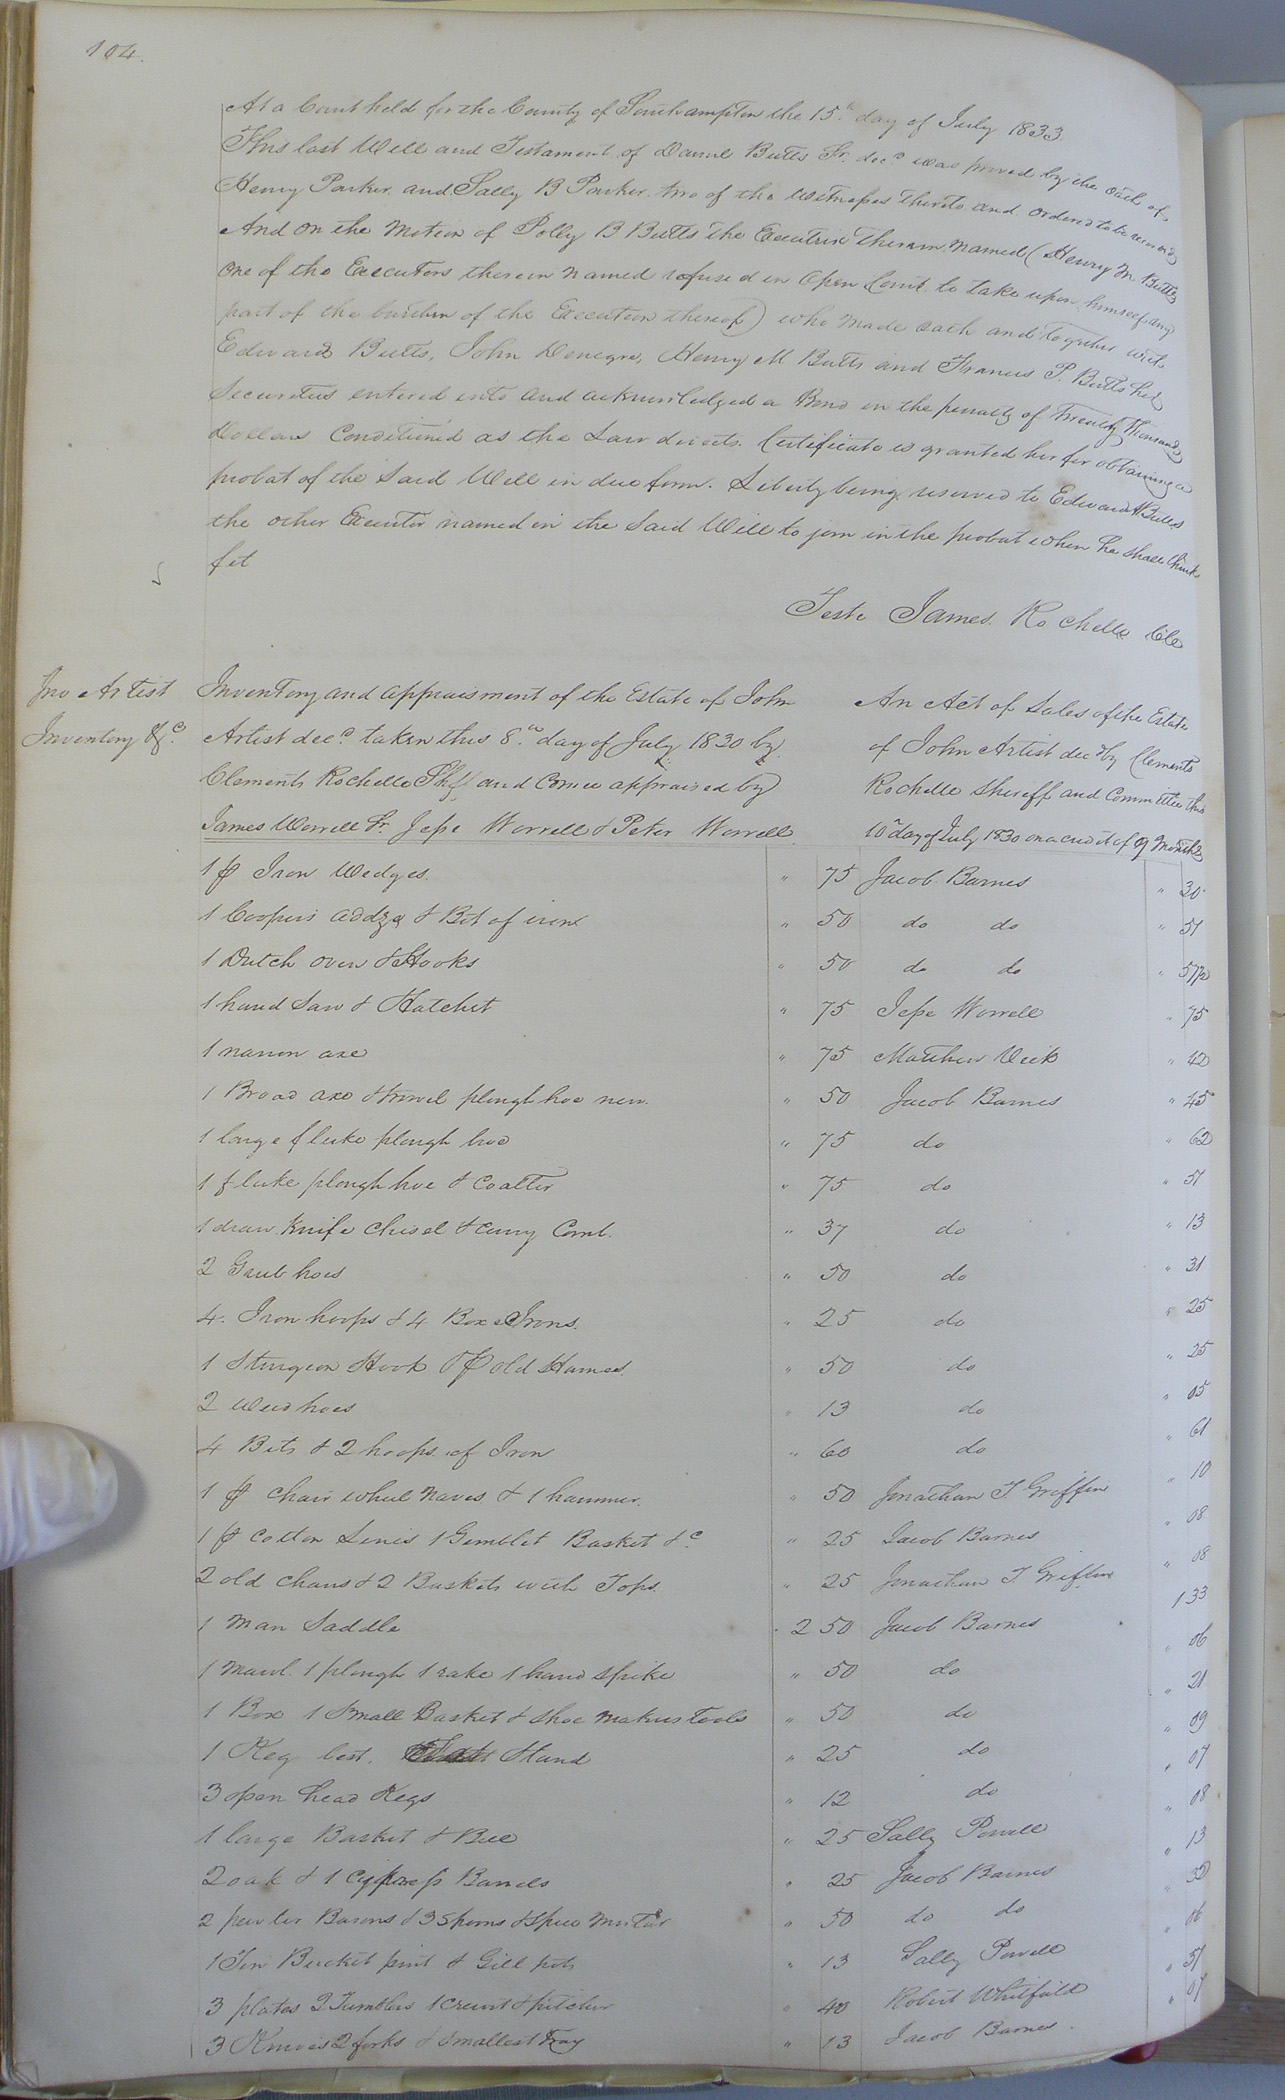 104.
At a Court held for the County of Southampton the 15th day of July 1833
This last Will and Testament of Daniel Butts Sr. decd was proved by the oath of
Henry Parker and Sally B Parker two of the witnesses thereto and ordered to be recorded
And on the motion of Polly B Butts the Executrix therein named (Henry M Butts
one of the Executors therein named refused in open Court to take upon himself any
part of the burthen of the Execution thereof) who made oath and together with
Edward Butts, John Denegre, Henry M Butts and Francis P. Butts her
Securities entered into and acknowledged a Bond in the penalty of Twenty Thousand
Dollars Conditioned as the Law directs. Certificate is granted her for obtaining a
probat of the said Will in due form. Liberty being reserved to Edward Butts
the other Executor named in the said Will to join in the probat when he shall think
fit
Teste James Rochelle Clk
Jno Artist
Inventory &c.
Inventory and appraisment of the Estate of John
Artist decd. taken this 8th day of July 1830 by
Clements Rochelle Shff and Comee appraised by
James Worrell Sr. Jesse Worrell & Peter Worrell
An Act of Sales of the Estate
of John Artist decd by Clements
Rochelle Sheriff and Committee this
10th day of July 1830 on a credit of 9 Months
1 p Iron Wedges. " 75 Jacob Barnes " 30
1 Coopers addze & Bit of iron " 50 do do " 51
1 Dutch oven & Hooks " 50 do do " 51½
1 hand Saw & Hatchet " 75 Jesse Worrell " 75
1 narrow axe " 75 Matthew Vick " 42
1 Broad axe & trowel plough hoe new. " 50 Jacob Barnes " 45
1 large fluke plough hoe " 75 do " 62
1 fluke plough hoe & Coalter " 75 do " 51
1 draw Knife Chisel & Curry Comb. " 37 do " 13
2 Grub hoes " 50 do " 31
4 Iron hoops & 4 Box Irons. " 25 do " 25
1 Sturgeon Hook & p old Hames. " 50 do " 25
2 Weed hoes " 13 do " 05
4 Bits & 2 hoops of Iron " 60 do " 61
1 p Chair wheel Naves & 1 hammer. " 50 Jonathan T. Griffin " 10
1 p Cotton Lines 1 Gimblet Basket &c. " 25 Jacob Barnes " 08
2 old Chairs & 2 Baskets with Tops. " 25 Jonathan T. Griffin " 08
1 Man Saddle 2 50 Jacob Barnes 1 33
1 Mawl. 1 plough 1 rake 1 hand spike " 50 do " 06
1 Box 1 Small Basket & Shoe makers Tools " 50 do " 21
1 Keg best. Stand " 25 do " 09
3 open head Kegs " 12 do " 07
1 large Basket & Bee " 25 Sally Powell " 08
2 oak & 1 Cypress Barrels " 25 Jacob Barnes " 13
2 pewter Basons & 3 Spoons & Spice Mortar " 50 do do " 32
1 Tin Bucket pint & Gill pots " 13 Sally Powell " 06
3 plates 2 Tumblers 1 cruit & pitcher " 40 Robert Whitfield " 51
3 Knives 2 forks & smallest Tray " 13 Jacob Barnes. " 07